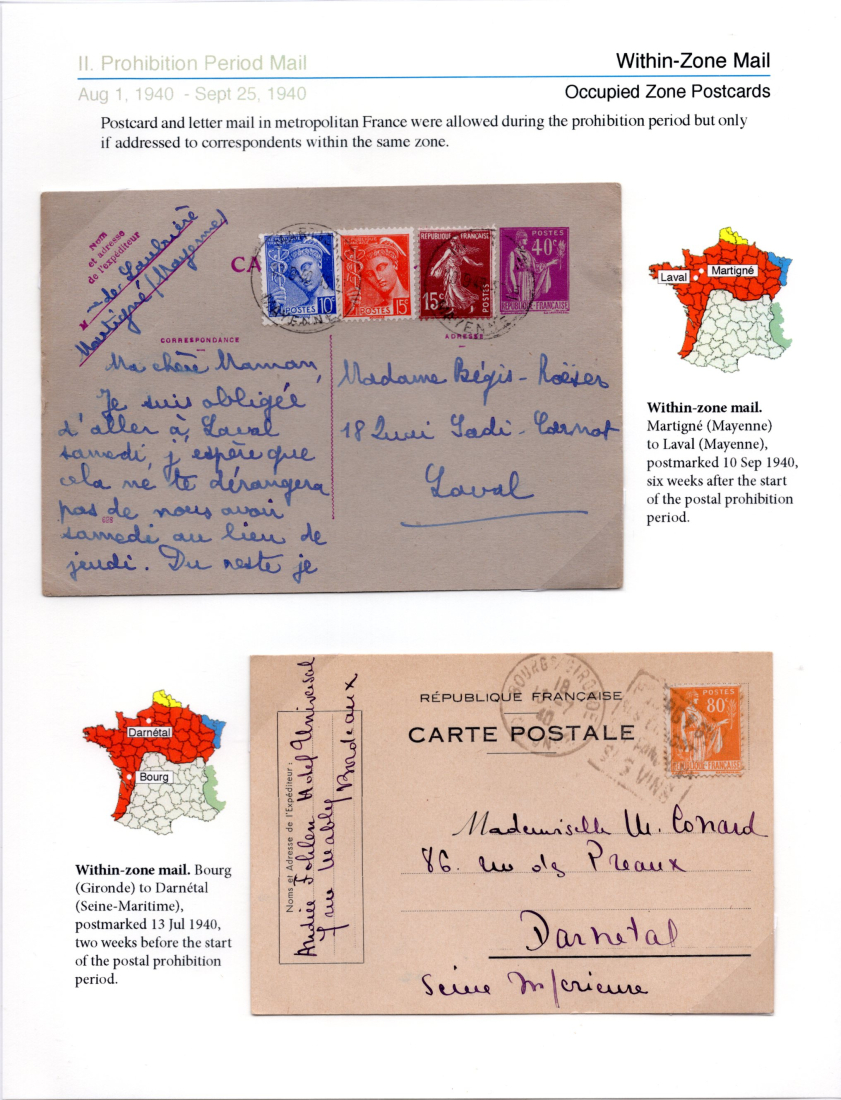 II. Prohibition Period Mail
Within-Zone Mail
Aug 1, 1940 - Sept 25, 1940
Occupied Zone Postcards
Postcard and letter mail in metropolitan France were allowed during the prohibition period but only
if addressed to correspondents within the same zone.
Nom
et adresse
de l'expéditeur
de
Martigné (Mayenne)
CA
POSTES
10c
POSTES
15c
RÉPUBLIQUE FRANÇAISE
15c
POSTES
POSTES
40c
RÉPUBLIQUE-FRANÇAISE
CORRESPONDANCE
ADRESSE
Ma chère Maman,
Je suis obligée
d'aller à Laval
samedi, j'espère que
cela ne te dérangera
pas de nous avoir
samedi au lieu de
jeudi. Du reste je
Madame Bégis-Roëser
18 Quai Sadi-Carnot
Laval
Laval
Martigné
Within-zone mail.
Martigné (Mayenne)
to Laval (Mayenne),
postmarked 10 Sep 1940,
six weeks after the start
of the postal prohibition
period.
Darnétal
Bourg
Within-zone mail. Bourg
(Gironde) to Darnétal
(Seine-Maritime),
postmarked 13 Jul 1940,
two weeks before the start
of the postal prohibition
period.
Noms et Adresse de l'Expéditeur :
Hotel Universal
rue Mably
Bordeaux
BOURG GIRONDE
18
40
SES VINS
POSTES
80c
RÉPUBLIQUE-FRANÇAISE
RÉPUBLIQUE FRANÇAISE
CARTE POSTALE
Mademoiselle M. Conard
86. rue des Preaux
Darnetal
Seine Inferieure